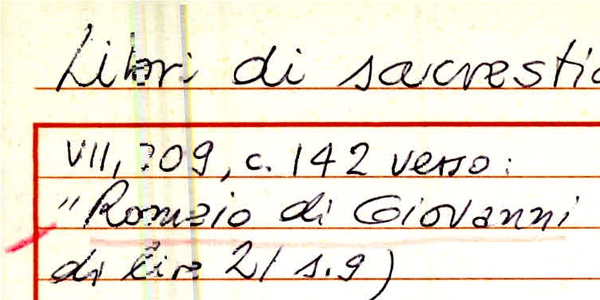 Libri di
VII, 709, c. 142 verso:
"Romzio di Giovanni
di lire 21 s. 9)